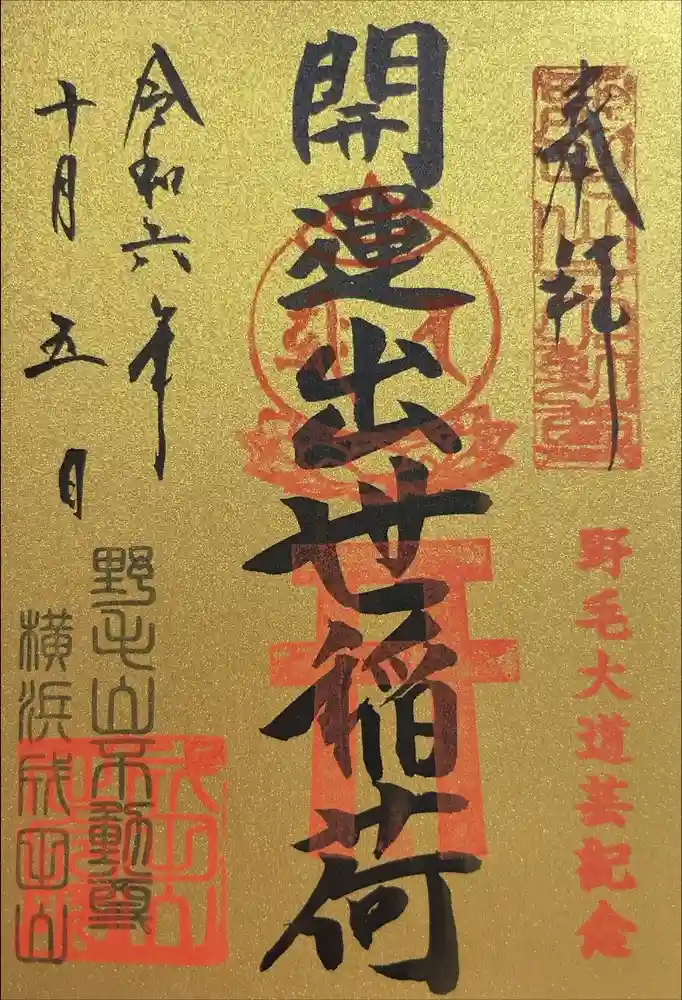 奉拝
野毛大道芸記念
開運出世稲荷
令和六年
十月五日
野毛山不動尊
横浜成田山